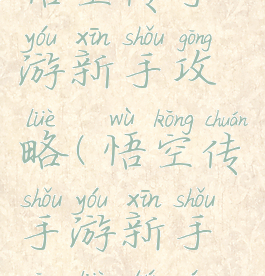 yóu xīn shǒu gōng
游新手攻
lüè wù kōng chuán
略(悟空传
shǒu yóu xīn shǒu
手游新手